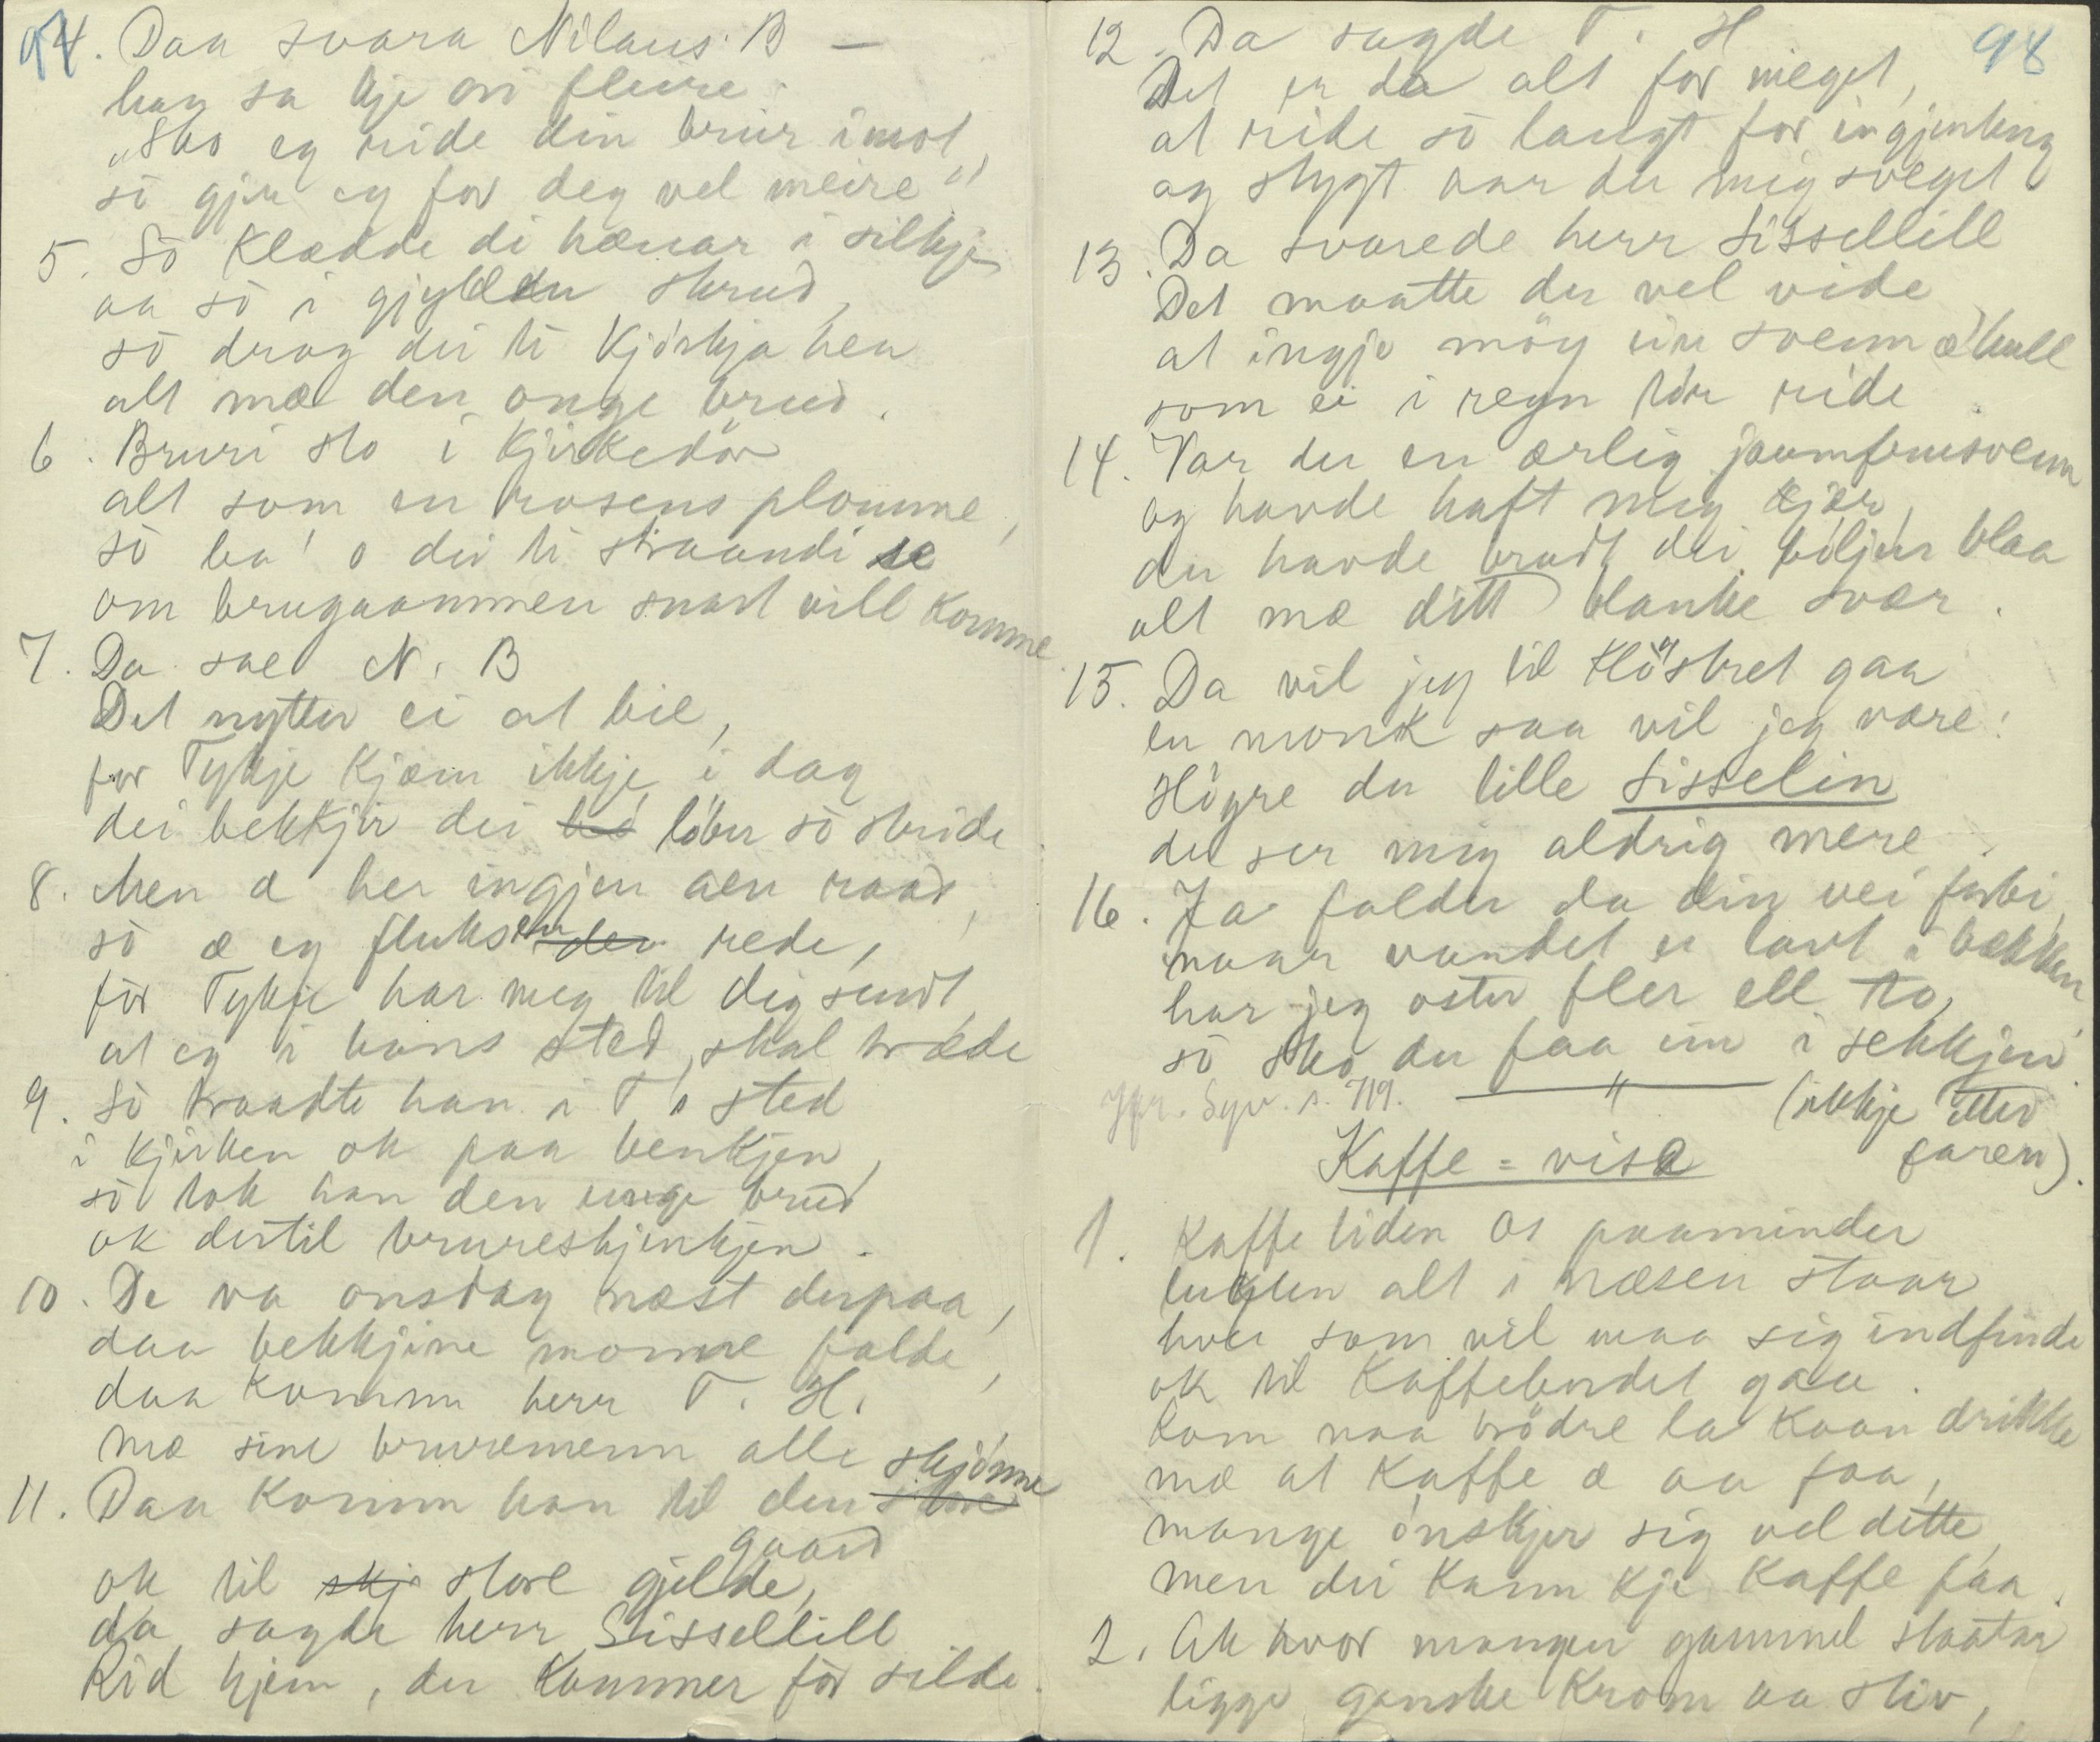 97
4. Daa svara Nilaus B —
han sa kje on fleire
„Sko eg ride din brur imot,
so gjer eg for deg vel meire"
5. So Klædde di hænar i silkje
aa so i gjylden skrud,
so drog dei ti Kjørkja hen
alt mæ den onge brud.
6. Bruri sto i Kjirkedør
alt som en rosens plomme,
so ba' o dei ti straandi se
om brugaammen snart vill Komme.
7. Da sae N. B
Det nytter ei at bie,
for Tykje Kjæm ikkje i dag
dei bekkjir dei løber so stride
8. Men æ her ingjen aen raad,
so æ eg fluks en rede,
før Tykje har meg til dig sendt
at eg i hans sted skal træde
9. So traadte han i T's sted
i Kjirken ok paa benkjen,
so tok han den unge brud
ok dertil brureskjenkjen.
10. De va onsdag næst derpaa,
daa bekkjine monne falde,
daa Komm herr T. H.
mæ sine bruremenn alle
11. Daa Komm han til den skjønne
gaard
ok til skj store gjilde,
da sagde herr Sissellill
Rid hjem, du Kommer før silde.
98
12. Da sagde T. H
Det er da alt for meget,
at ride so langt for ingjenting
og stygt har du mig sveget
13. Da svarede herr Sissellill
Det maatte du vel vide
at ingje möy ein svenn æ hull
som ei i regn tør ride.
14. Var du en ærlig jaumfruesvenn
og havde haft meg kjær,
du havde brudt dei biljur blaa
alt mæ ditt blanke svær.
15. Da vil jeg til Kløstret gaa
en monk saa vil jeg være!
Høyre du lille Sisselin
du ser mig aldrig mere.
16. Ja falder da din vei forbi,
naar vandet er lavt i bækken
har jeg oster fler ell to,
so sko du faa ein i sekkjen.
Jfr. Syv. s. 719.
(ikkje etter
faren).
Kaffe = visa
1. Kaffe tiden os paaminder
lukten alt i næsen staar
hver som vil maa sig indfinde
ok til Kaffebordet gaa.
Kom naa brødre la Kaan drikke
mæ at Kaffe æ aa faa,
mange ønskjer sig vel dette,
men dei Kann kje Kaffe faa.
2. Ak hvor mangen gammel staatar
ligge ganske Krom aa stiv,